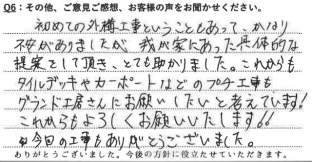 Q6：その他、ご意見ご感想、お客様の声をお聞かせください。
初めての外構工事ということもあって、かなり
不安がありましたが、我が家にあった具体的な
提案をして頂き、とても助かりました。これからも
タイルデッキやカーポートなどのプチ工事も
グランド工房さんにお願いしたいと考えています!
これからもよろしくお願いいたします!!
今回の工事もありがとうございました。
ありがとうございました。今後の方針に役立たせていただきます。